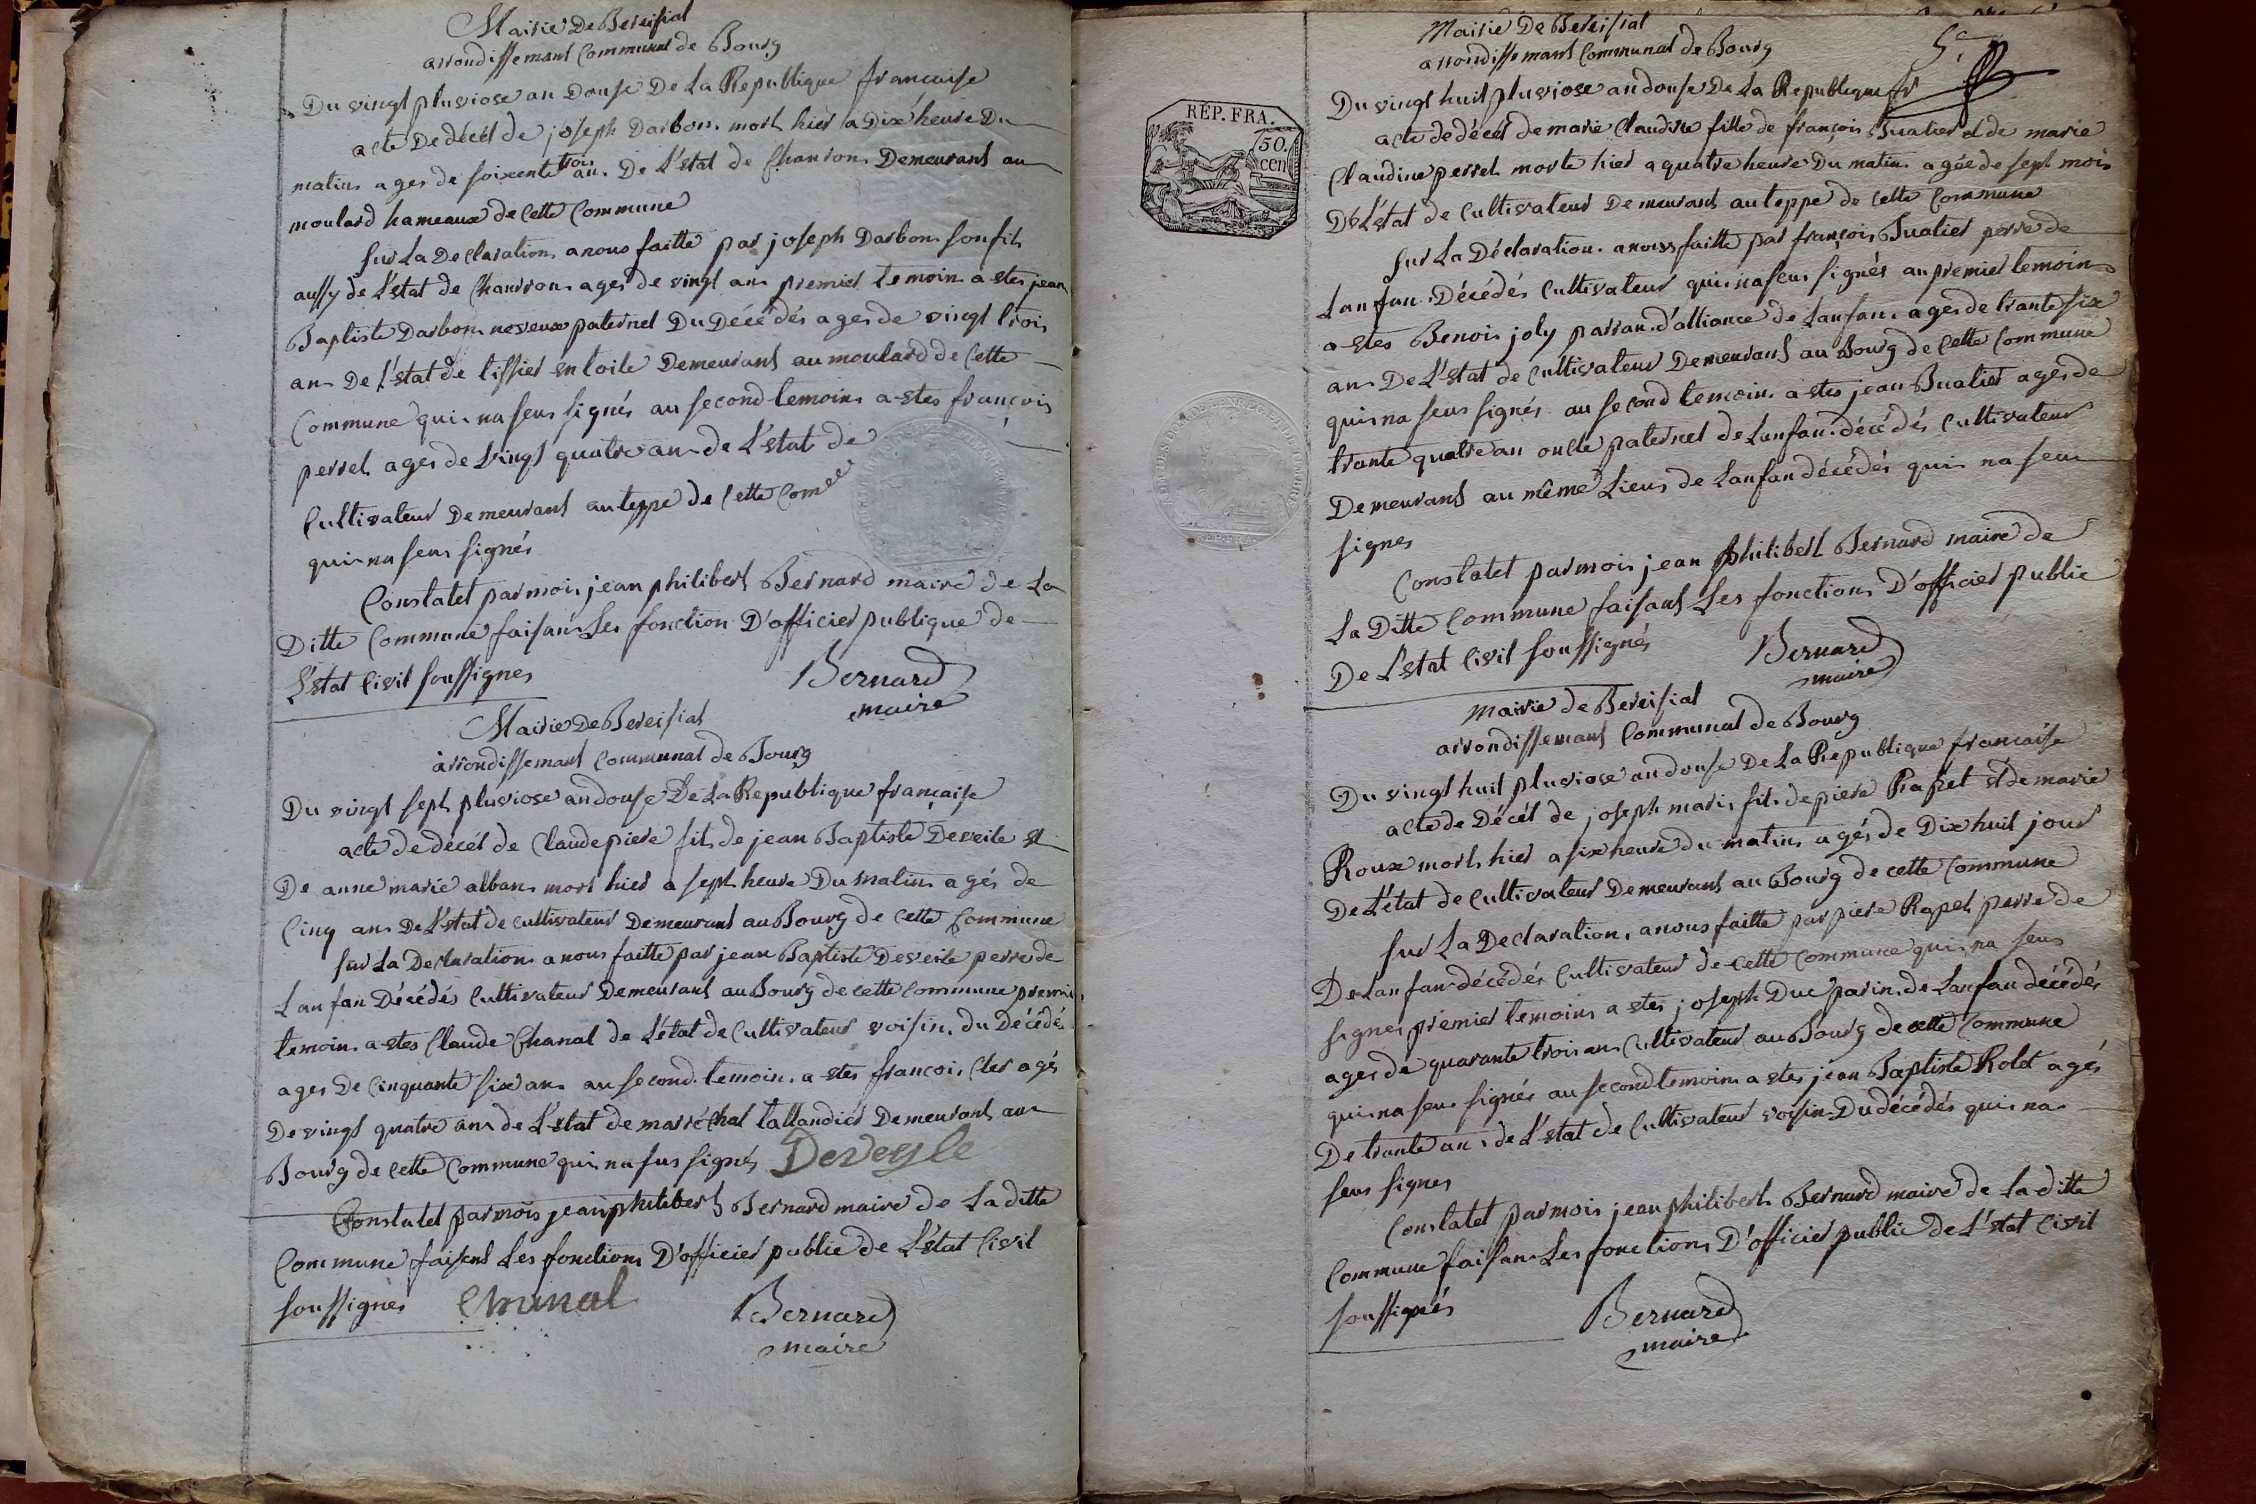 Mairie De Bereisiat
arrondissemant Communal de Bourg
Du vingt pluviose an Douse De La Republique francaise
acte De décét de joseph Darbon mort hier a Dix heure Du
matin ages de soixente trois an De L'état de Chanvron Demeurant au
moulard hameaux de Cette Commune
sur La Declaration a nous faitte par joseph Darbon son fils
aussy de L'état de Chanvron ages de vingt an premier temoin a etes jean
Baptiste Darbon neveux paternel Du Décédés ages de vingt trois
an De L'état de tissier en toile Demeurant au moulard de Cette
Commune qui na seus signés au second temoin a etes françois
perret ages de vingt quatre an de L'état de
Cultivateur Demeurant au teppe de Cette Comee
qui na seus signés
Constatet par moi jean philibert Bernard maire de La
Ditte Commune faisan Les fonction D'officier publique de
L'état Civil soussignes
Bernard
maire
Mairie De Bereisiat
arrondissemant Communal de Bourg
Du vingt sept pluviose an douse De La Republique française
acte de décét de Claude piere fils de jean Baptiste Deveile et
De anne marie alban mort hier a sept heure Du matin agés de
Cinq an De L'état de cultivateur Demeurant au Bourg de Cette Commune
sur La Declaration a nous faitte par jean Baptiste Deveile perre de
Lanfan Décédés Cultivateur Demeurant au Bourg de cette Commune premie
temoin a etes Claude Chanal de L'état de Cultivateur voisin du Décédé
ages De Cinquante six an au second temoin a etes francois Cler agés
De vingt quatre an de L'état de marréchal tallandier Demeurant au
Bourg de Cette Commune qui na sus signés Deveyle
Constatet par moi jean philibert Bernard maire de La ditte
Commune faisent Les fonction D'officier public de L'état Civil
soussignés Chanal
Bernard
maire
5e
Mairie De Bereisiat
arrondissemant Communal de Bourg
Du vingt huit pluviose an douse De La Republique fr
acte de décét de marie Claudine fille de françois Buatier et de marie
Claudine perret morte hier a quatre heure Du matin agée de sept mois
De L'état de Cultivateur Demeurant au teppe de Cette Commune
RÉP. FRA.
50.
cen
sur La Déclaration a nous faitte par françois Buatier perre de
Lanfan Décédés Cultivateur qui na seus signés au premier temoin
a etes Benoi joly parran d'alliance de Lanfan ages de trante six
an De L'état de Cultivateur Demeurant au Bourg de Cette Commune
qui na seus signés au second temoin a etes jean Buatier agés de
trante quatre an oncle paternel de Lanfan décédés Cultivateur
Demeurant au même Lieus de Lanfan décédés qui na seus
signes
Constatet par moi jean philibert Bernard maire de
La Ditte Commune faisant Les fonction D'officier public
De L'état Civil soussignés
Bernard
maire
mairie de Bereisiat
arrondissemant Communal de Bourg
Du vingt huit pluviose an douse De La Republique française
acte de Décét de joseph mari fils de piere Rapet et de marie
Roux mort hier a six heure du matin agés de Dix huit jour
De L'état de Cultivateur Demeurant au Bourg de cette Commune
sur La Declaration a nous faitte par piere Rapet perre de
De Lanfan décédés Cultivateur de Cette Commune qui na seus
signes premier temoin a etes joseph Duc parin de Lanfan décédés
ages de quarante trois an Cultivateur au Bourg de cette Commune
qui na seus signés au second temoin a etes jean Baptiste Rolet agés
De trante an de L'état de Cultivateur voisin Du décédés qui na
seus signes
Constatet par moi jean philibert Bernard maire de La ditte
Commune faisan Les fonction D'officier public de L'état Civil
soussignés
Bernard
maire